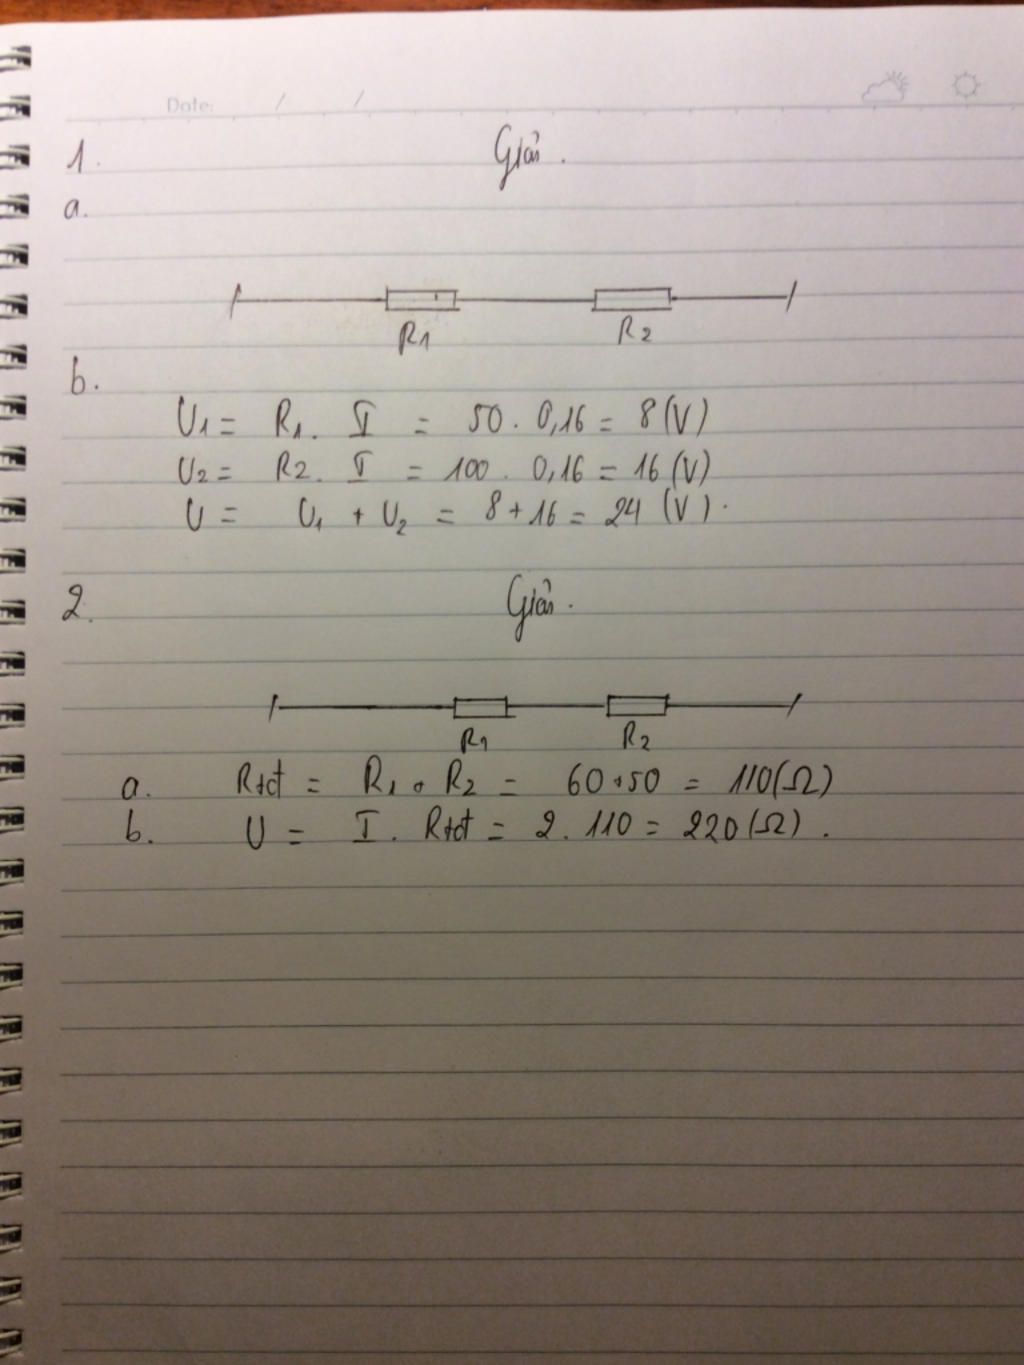 Date: / /
1. Giải.
a.
R1 R2
b.
U1 = R1. I = 50. 0,16 = 8(V)
U2 = R2. I = 100. 0,16 = 16(V)
U = U1 + U2 = 8+16 = 24 (V).
2. Giải.
R1 R2
a. Rtđ = R1 + R2 = 60+50 = 110(Ω)
b. U = I. Rtđ = 2. 110 = 220(Ω).